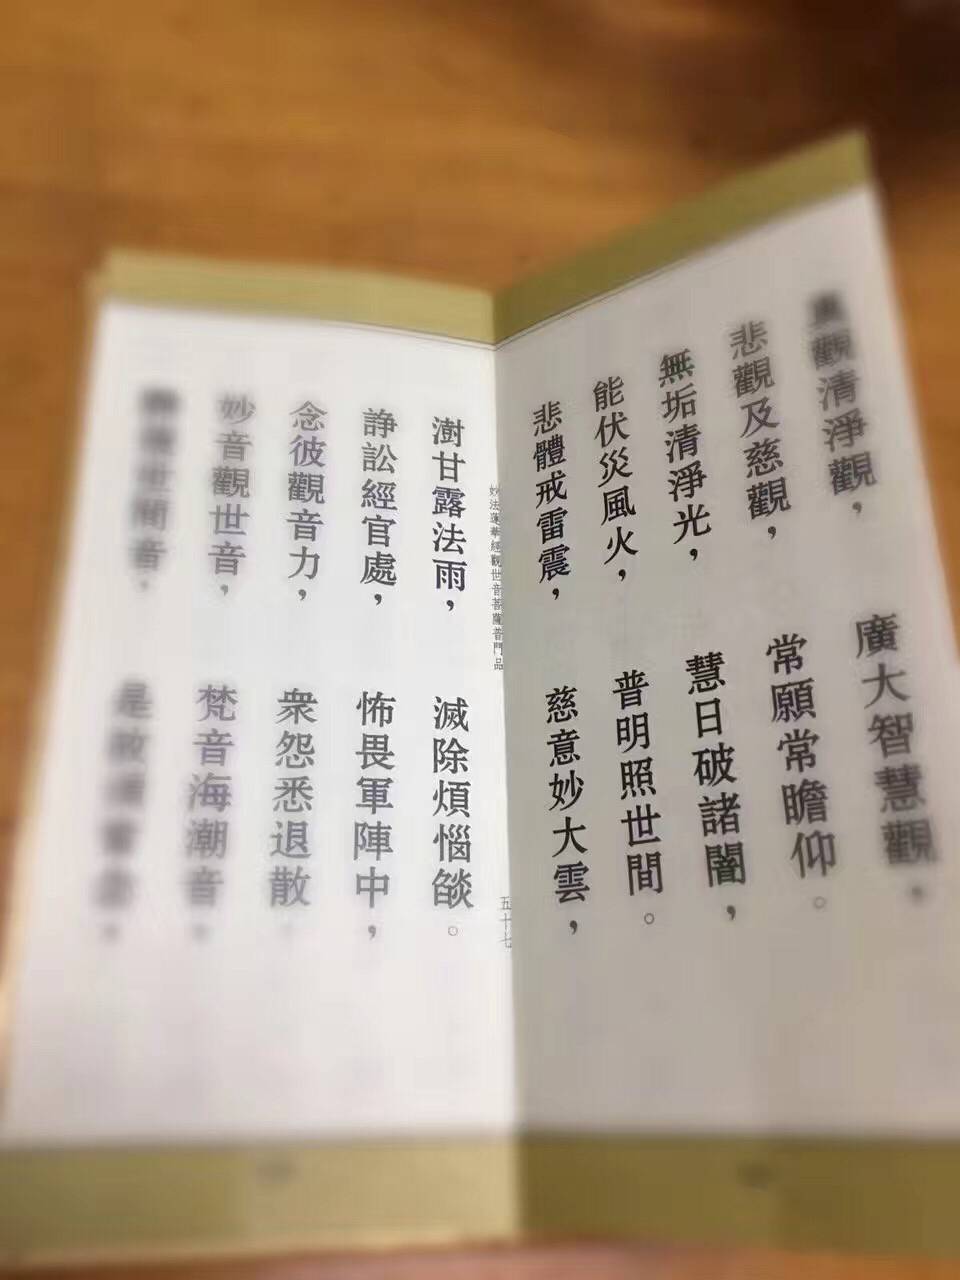 真觀清淨觀，廣大智慧觀，
悲觀及慈觀，常願常瞻仰。
無垢清淨光，慧日破諸闇，
能伏災風火，普明照世間。
悲體戒雷震，慈意妙大雲，
妙法蓮華經觀世音菩薩普門品 五十七
澍甘露法雨，滅除煩惱燄。
諍訟經官處，怖畏軍陣中，
念彼觀音力，衆怨悉退散。
妙音觀世音，梵音海潮音，
世間音，是故